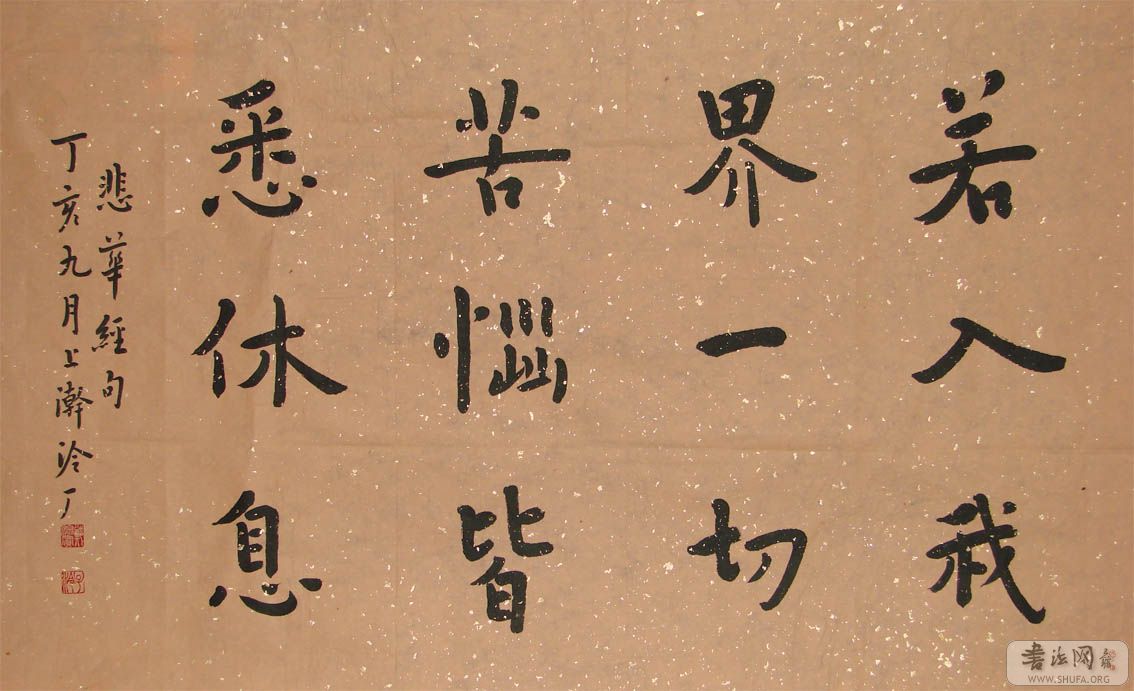 若入我
界一切
苦惱皆
悉休息
悲華經句
丁亥九月上澣泠丁
書法网
WWW.SHUFA.ORG